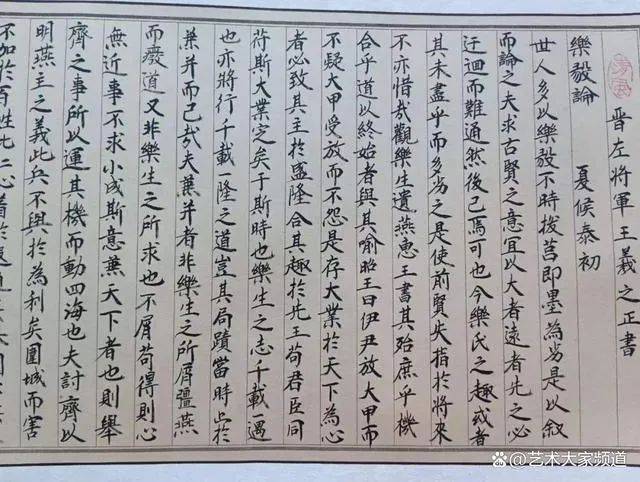 晋左將軍王義之正書
樂毅論 夏候泰初
世人多以樂毅不時拔莒即墨為劣是以叙
而論之夫求古賢之意宜以大者遠者先之必
迂迴而難通然後已焉可也今樂氏之趣或者
其未盡乎而多劣之是使前賢失指於將來
不亦惜哉觀樂生遺燕惠王書其殆庶乎機
合乎道以終始者與其喻昭王曰伊尹放大甲而
不疑大甲受放而不怨是存大業於天下為心
者必致其主於盛隆合其趣於先王苟君臣同
符斯大業定矣于斯時也樂生之志千載一遇
也亦將行千載一隆之道豈其局蹟當時止於
兼并而已哉夫兼并者非樂生之所屑彊燕
而廢道又非樂生之所求也不屑苟得則心
無近事不求小成斯意兼天下者也則舉
齊之事所以運其機而動四海也夫討齊以
明燕主之義此兵不興於為利矣圍城而害
不加於百姓此仁心著於遐
@艺术大家频道